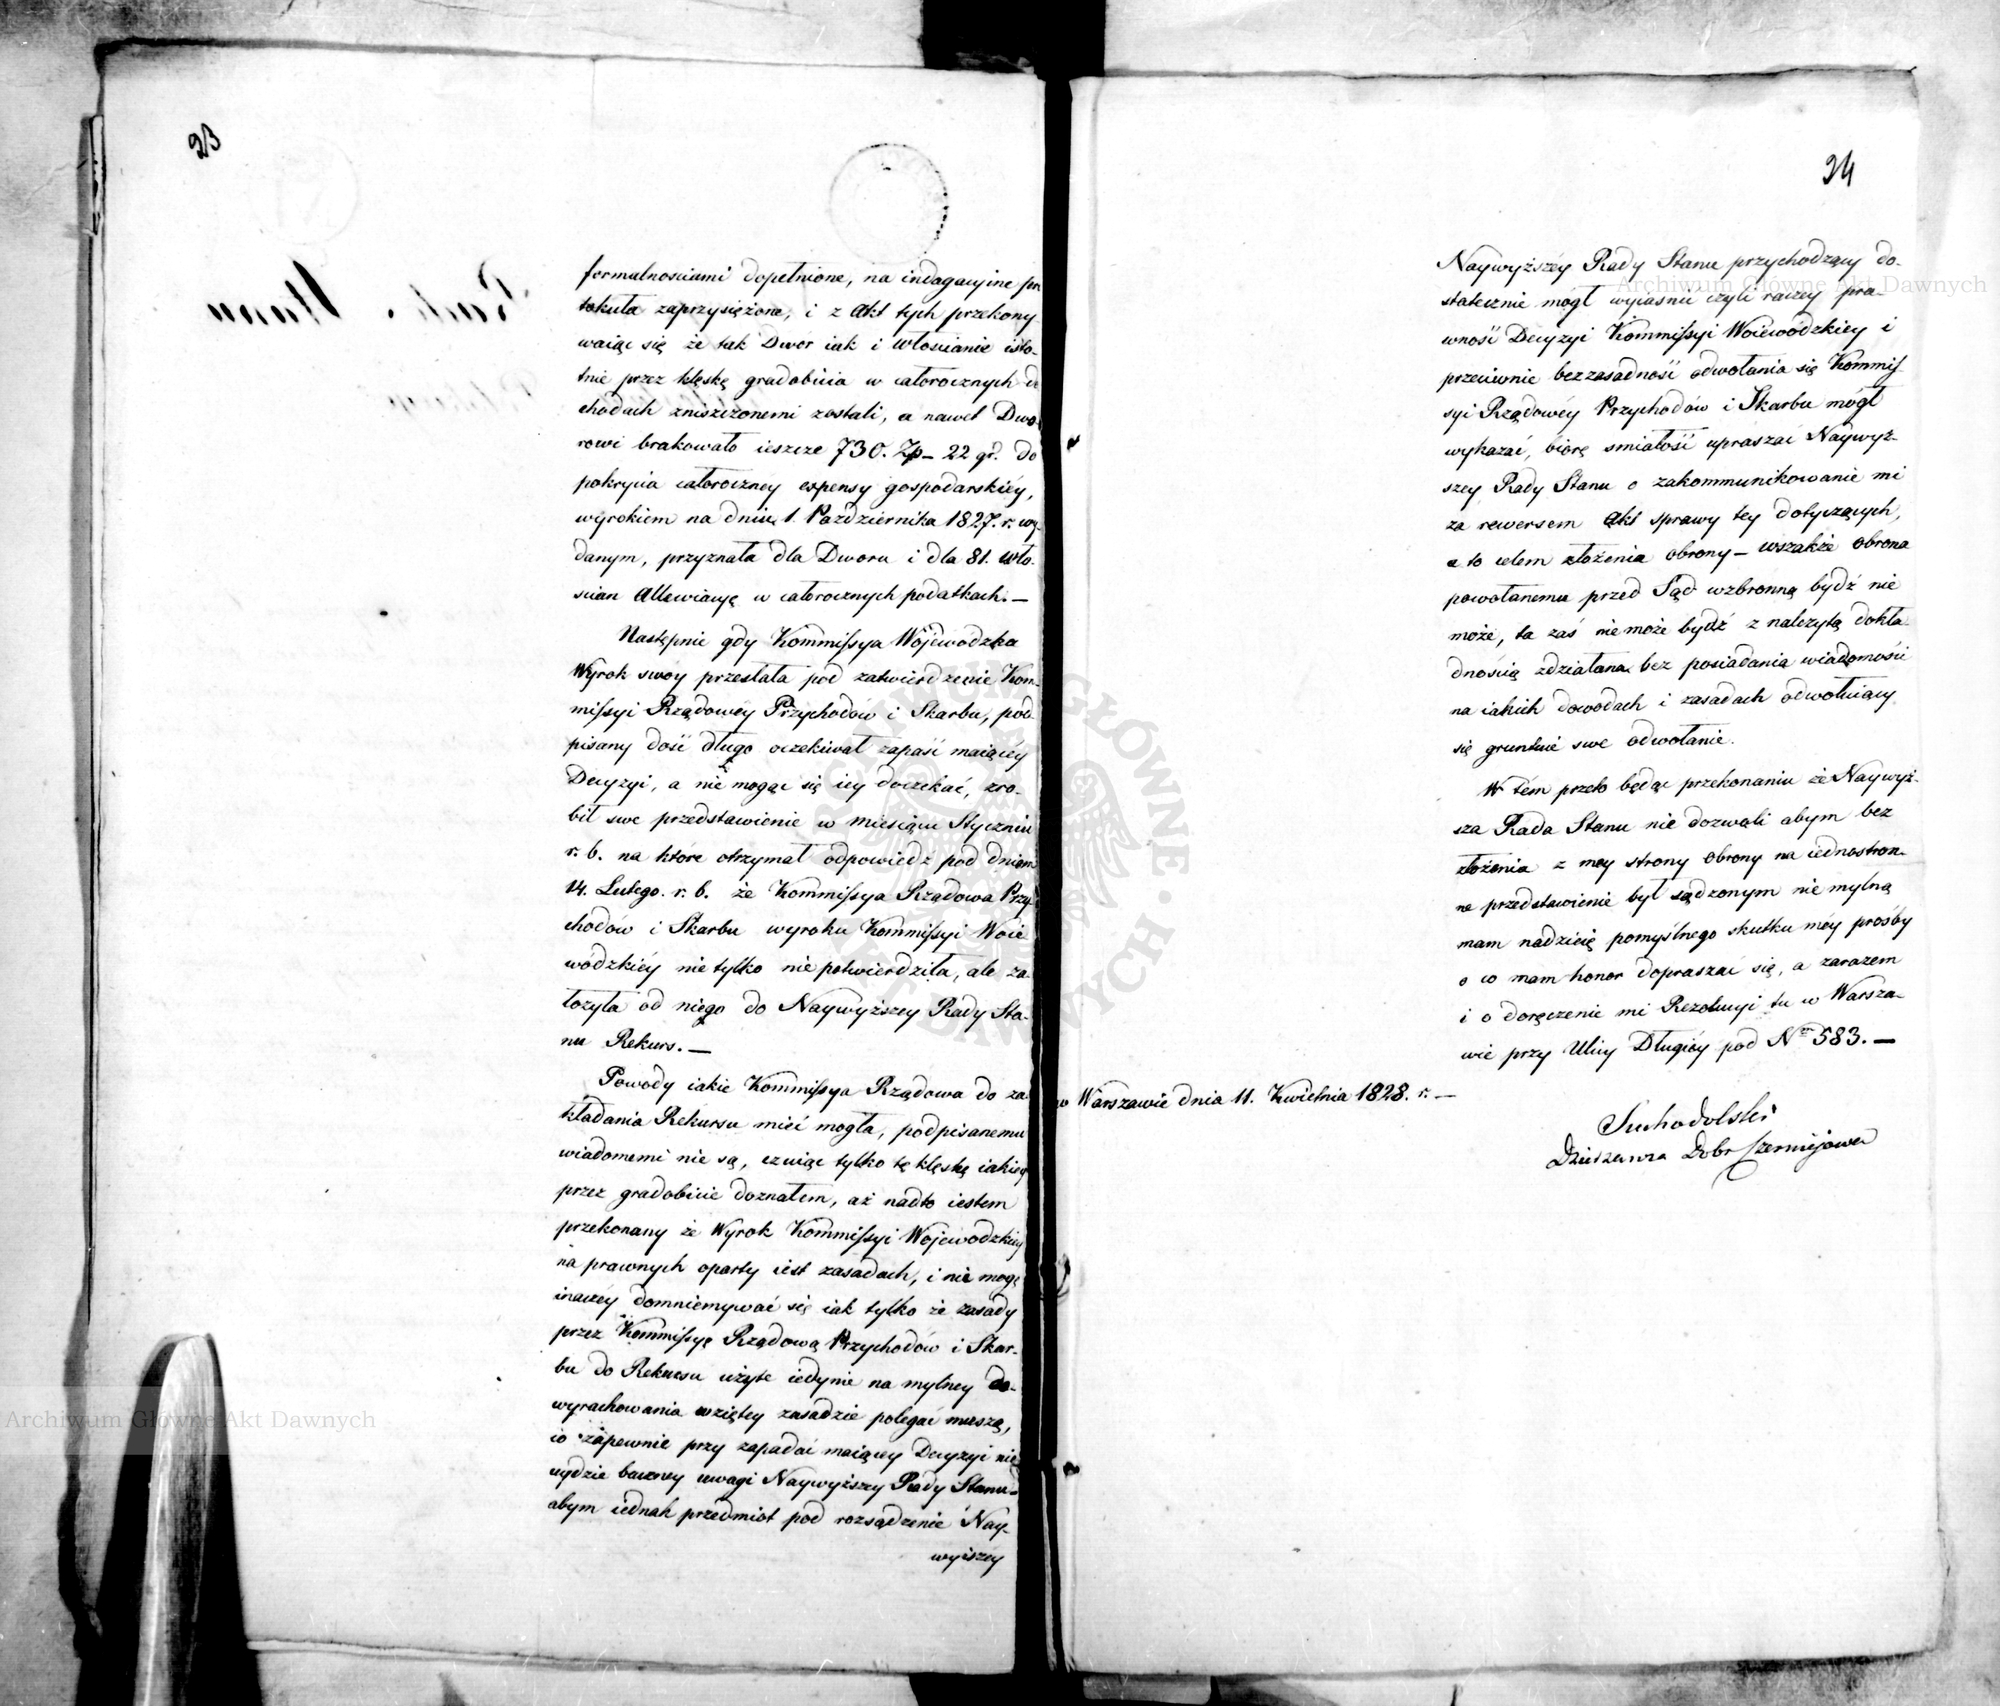 23
formalnosciami dopełnione, na indagacyine pro
tokuła zaprzysiężone, i z Akt tych przekony
waiąc się że tak Dwór iak i Włoscianie isto-
tnie przez klęskę gradobicia w całorocznych do
chodach zniszczonemi zostali, a nawet Dwo
rowi brakowało ieszcze 730. Zp_ 22 gr. do
pokrycia całoroczney expensy gospodarskiéy,
wyrokiem na dniu 1. Października 1827. r. wy-
danym, przyznała dla Dworu i dla 81. wło-
scian Allewiacyę w całorocznych podatkach._
Następnie gdy Kommissya Wojewodzka
Wyrok swóy przesłała pod zatwierdzenie Kom-
missyi Rządowéy Przychodów i Skarbu, pod-
pisany dość długo oczekiwał zapaść maiącéy
Decyzyi, a nie mogąc się iey doczekać, zro-
bił swe przedstawienie w miesiącu Styczniu
r. b. na które otrzymał odpowiedź pod dniem
14. Lutego. r. b. że Kommissya Rządowa Przy
chodów i Skarbu wyroku Kommissyi Woie
wódzkiéy nietylko nie potwierdziła, ale za-
łozyła od niego do Naywyższey Rady Sta-
nu Rekurs._
Powody iakie Kommissya Rządowa do za
kładania Rekursu mieć mogła, podpisanemu
wiadomemi nie są, czuiąc tylko tę klęskę iakiey
przez gradobicie doznałem, aż nadto iestem
przekonany że Wyrok Kommissyi Wojewodzkiey
na prawnych oparty iest zasadach, i nie mogę
inaczéy domniemywać się iak tylko że zasady
przez Kommissyę Rządową Przychodów i Skar-
bu do Rekursu użyte iedynie na mylney do-
wyrachowania wziętey zasadzie polegać muszą,
co zapewnie przy zapadać maiącey Decyzyi nie
uydzie baczney uwagi Naywyższey Rady Stanu_
abym iednak przedmiot pod rozsądzenie Nay-
wyższey
24
Naywyższéy Rady Stanu przychodzący do-
statecznie mógł wyiasnić czyli raczey pra-
wność Decyzyi Kommissyi Woiewódzkiey i
przeciwnie bezzasadność odwołania się Kommis-
syi Rządowéy Przychodów i Skarbu mógł
wykazać, biorę smiałość upraszać Naywyż-
szey Rady Stanu o zakommunikowanie mi
za rewersem Akt sprawy tey dotyczących,
a to celem złożenia obrony_ wszakże obrona
powołanemu przed Sąd wzbronną bydź nie
może, ta zaś nie może bydź z należytą dokła
dnością zdziałana bez posiadania wiadomości
na iakich dowodach i zasadach odwołuiący
się gruntuie swe odwołanie.
W tém przeto będąc przekonaniu że Naywyż-
sza Rada Stanu nie dozwoli abym bez
złożenia z mey strony Obrony na iednostron-
ne przedstawienie był sądzonym nie mylną
mam nadzieię pomyślnego skutku méy prośby
o co mam honor dopraszać się, a zarazem
i o doręczenie mi Rezolucyi tu w Warsza-
wie przy Ulicy Długiéy pod Nrem 583._
w Warszawie dnia 11. Kwietnia 1828. r._
Suchodolski
Dzierzawca Dobr Czerniejowa
Archiwum Główne Akt Dawnych
Archiwum Główne Akt Dawnych